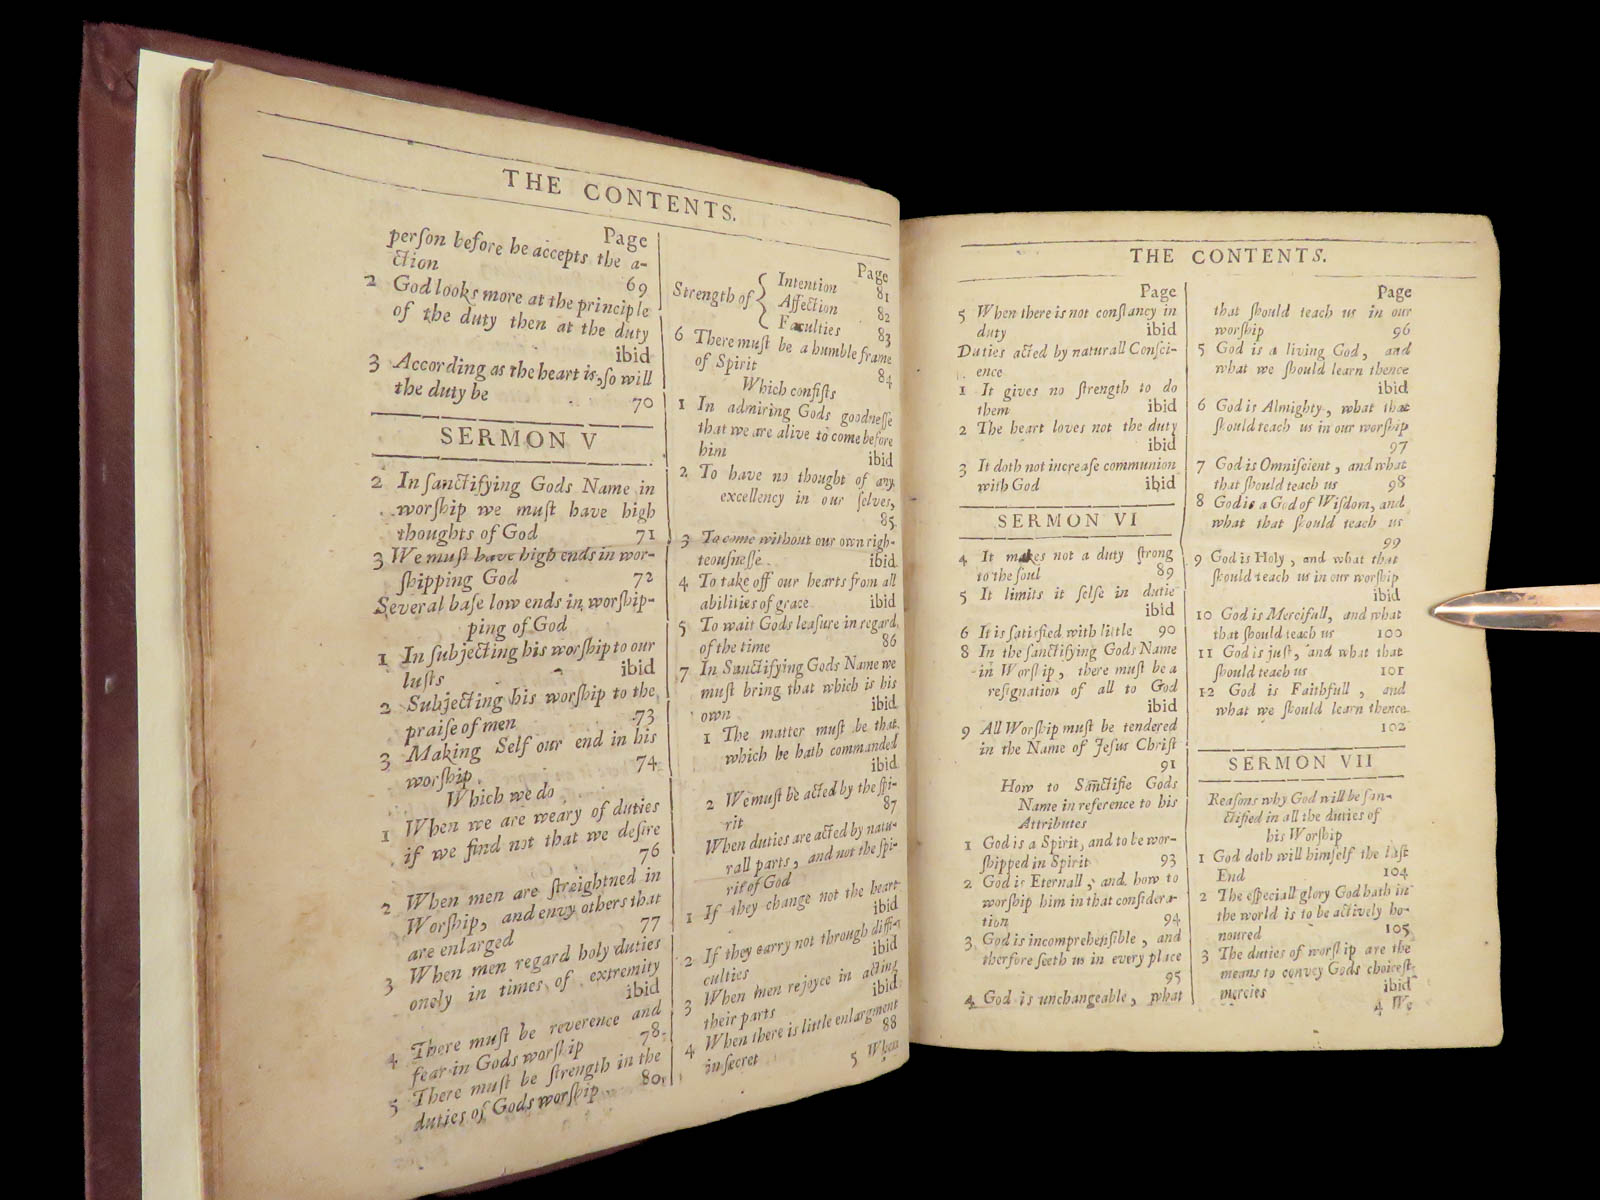 THE CONTENTS.
Page
perſon before he accepts the a-
ction 69
2 God looks more at the principle
of the duty then at the duty
ibid
3 According as the heart is, ſo will
the duty be 70
SERMON V
2 In ſanctifying Gods Name in
worſhip we muſt have high
thoughts of God 71
3 We muſt have high ends in wor-
ſhipping God 72
Several baſe low ends in worſhip-
ping of God
1 In ſubjecting his worſhip to our
luſts ibid
2 Subjecting his worſhip to the
praiſe of men 73
3 Making Self our end in his
worſhip. 74
Which we do
1 When we are weary of duties
if we find not that we deſire
76
2 When men are ſtreightned in
Worſhip, and envy others that
are enlarged 77
3 When men regard holy duties
onely in times of extremity
ibid
4 There muſt be reverence and
fear in Gods worſhip 78
5 There muſt be ſtrength in the
duties of Gods worſhip 80
Page
Strength of { Intention 81
Affection 82
Faculties 83
6 There muſt be a humble frame
of Spirit 84
Which conſiſts
1 In admiring Gods goodneſſe
that we are alive to come before
him ibid
2 To have no thought of any
excellency in our ſelves,
85
3 To come without our own righ-
teouſneſſe ibid
4 To take off our hearts from all
abilities of grace ibid
5 To wait Gods leaſure in regard
of the time 86
7 In Sanctifying Gods Name we
muſt bring that which is his
own ibid
1 The matter muſt be that
which he hath commanded
ibid
2 We muſt be acted by the ſpi-
rit 87
When duties are acted by natu-
rall parts, and not the ſpi-
rit of God
1 If they change not the heart
ibid
2 If they carry not through diffi-
culties ibid
3 When men rejoyce in acting
their parts ibid
4 When there is little enlargment
in ſecret 88
5 When
THE CONTENTS.
Page
5 When there is not conſtancy in
duty ibid
Duties acted by naturall Conſci-
ence
1 It gives no ſtrength to do
them ibid
2 The heart loves not the duty
ibid
3 It doth not increaſe communion
with God ibid
SERMON VI
4 It makes not a duty ſtrong
to the ſoul 89
5 It limits it ſelfe in dutie
ibid
6 It is ſatisfied with little 90
8 In the ſanctifying Gods Name
in Worſhip, there muſt be a
reſignation of all to God
ibid
9 All Worſhip muſt be tendered
in the Name of Jeſus Chriſt
91
How to Sanctifie Gods
Name in reference to his
Attributes
1 God is a Spirit, and to be wor-
ſhipped in Spirit 93
2 God is Eternall, and how to
worſhip him in that conſidera-
tion 94
3 God is incomprehenſible, and
therfore ſeeth us in every place
95
4 God is unchangeable, what
Page
that ſhould teach us in our
worſhip 96
5 God is a living God, and
what we ſhould learn thence
ibid
6 God is Almighty, what that
ſhould teach us in our worſhip
97
7 God is Omniſcient, and what
that ſhould teach us 98
8 God is a God of Wiſdom, and
what that ſhould teach us
99
9 God is Holy, and what that
ſhould teach us in our worſhip
ibid
10 God is Mercifull, and what
that ſhould teach us 100
11 God is juſt, and what that
ſhould teach us 101
12 God is Faithfull, and
what we ſhould learn thence
102
SERMON VII
Reaſons why God will be ſan-
ctified in all the duties of
his Worſhip
1 God doth will himſelf the laſt
End 104
2 The eſpeciall glory God hath in
the world is to be actively ho-
noured 105
3 The duties of worſhip are the
means to convey Gods choiceſt
mercies ibid
4 We